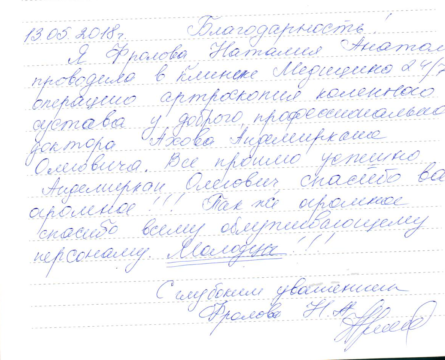 13.05.2018г. Благодарность!
Я Фролова Наталия Анатол
проводила в клинике Медицина 24/7
операцию артроскопия коленного
сустава у доброго, профессионально
доктора Ахова Андемиркана
Олеговича. Все прошло успешно
Андемиркан Олегович, спасибо ва
огромное!!! Так же огромное
спасибо всему обслуживающему
персоналу. Молодцы!!!
С глубоким уважением
Фролова Н.А.